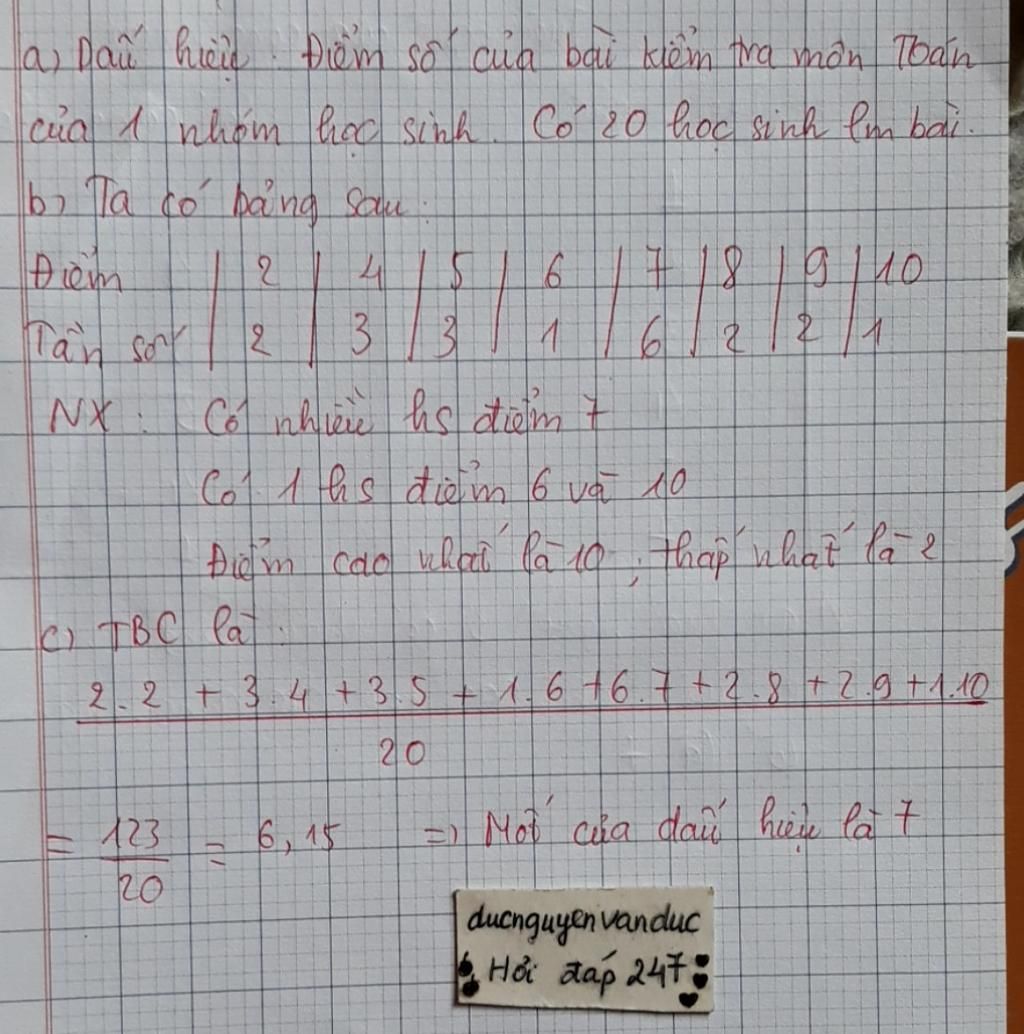 a) Dấu hiệu. Điểm số của bài kiểm tra môn Toán
của 1 nhóm học sinh. Có 20 học sinh lm bài.
b) Ta có bảng sau:
Điểm | 2 | 4 | 5 | 6 | 7 | 8 | 9 | 10
Tần số | 2 | 3 | 3 | 1 | 6 | 2 | 2 | 1
NX: Có nhiều hs điểm 7
Có 1 hs điểm 6 và 10
Điểm cao nhất là 10, thấp nhất là 2
c) TBC là:
2.2 + 3.4 + 3.5 + 1.6 + 6.7 + 2.8 + 2.9 + 1.10
20
= 123/20 = 6,15 => Mốt của dấu hiệu là 7
ducnguyenvanduc
Hỏi đáp 247